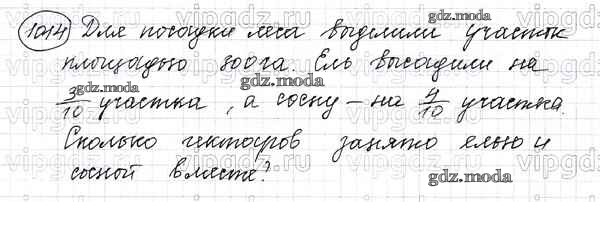 1014 Для посадки леса выделили участок
площадью 300га. Ель высадили на
3/10 участка, а сосну – на 4/10 участка.
Сколько гектаров занято елью и
сосной вместе?
gdz.moda
gdz.moda
gdz.moda
gdz.moda
vipgdz.ru